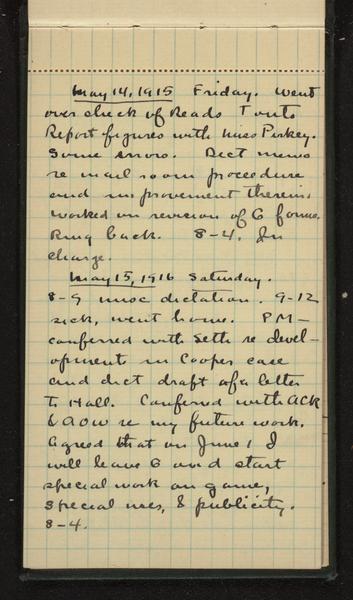 May 14, 1915 Friday. Went
over check of Reads
Report figures with Miss Perkey.
Some errors. Dict memo
re mail room procedure
and improvement therein.
Worked on revision of G forms.
Ring back. 8-4. In
charge.
May 15, 1916 Saturday.
8-9 misc dictation. 9-12
sick, went home. PM-
conferred with Seth re devel-
opments in Cooper case
and dict draft of a letter
to Hall. Conferred with ACR
& AOW re my future work.
Agreed that on June 1 I
will leave G and start
special work on game,
special uses, & publicity.
8-4.